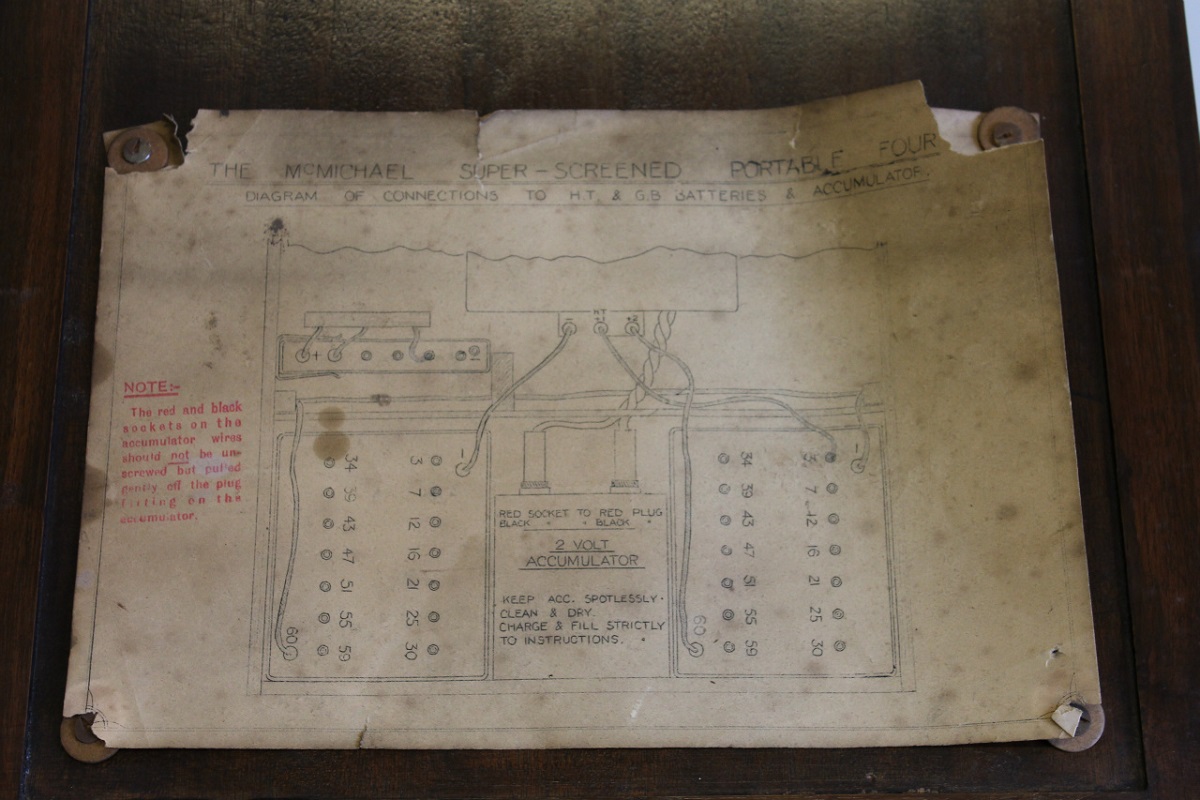 THE McMICHAEL SUPER-SCREENED PORTABLE FOUR
DIAGRAM OF CONNECTIONS TO H.T. & G.B BATTERIES & ACCUMULATOR.
- HT +2
+ -
NOTE:-
The red and black
sockets on the
accumulator wires
should not be un-
screwed but pulled
gently off the plug
fitting on the
accumulator.
34 3 -
39 7
43 12
47 16
51 21
55 25
60 59 30
RED SOCKET TO RED PLUG
BLACK " " BLACK "
2 VOLT
ACCUMULATOR
KEEP ACC. SPOTLESSLY
CLEAN & DRY.
CHARGE & FILL STRICTLY
TO INSTRUCTIONS.
34 3 -
39 7
43 12
47 16
51 21
55 25
60 59 30